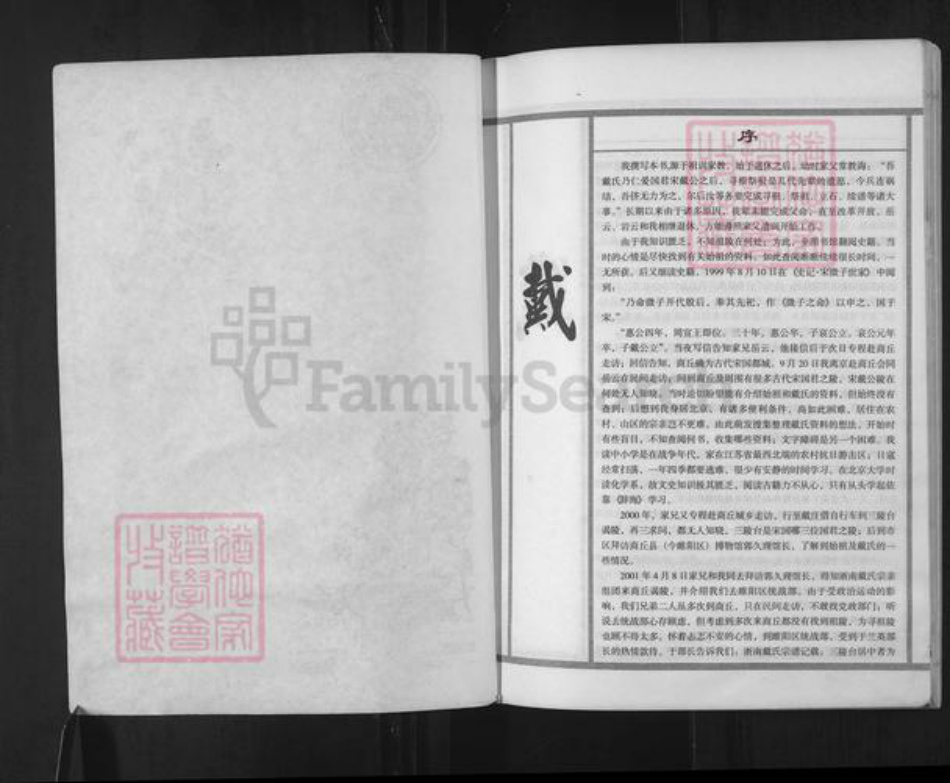 序
我撰写本书,源于祖训家教,始于退休之后。幼时家父常教诲:“吾
戴氏乃仁爱国君宋戴公之后,寻根祭祖是几代先辈的遗愿,今兵连祸
结,吾侪无力为之,尔后汝等务要完成寻祖、祭祖、立石、续谱等诸大
事。”长期以来由于诸多原因,我辈未能完成父命,直至改革开放,岳
云、岩云和我相继退休,方能遵照家父遗嘱开始工作。
由于我知识匮乏,不知祖陵在何处;为此,
时的心情是尽快找到有关始祖的资料。如此查阅断断续续很长时间,一
无所获。后又细读史籍,1999年8月10日在《史记·宋微子世家》中阅
到:
“乃命微子开代殷后,奉其先祀,作《微子之命》以申之,国于
宋。”
“惠公四年,周宣王即位。三十年,惠公卒,子哀公立。哀公元年
卒,子戴公立”。当夜写信告知家兄岳云,他接信后于次日专程赴商丘
走访;回信告知,商丘确为古代宋国都城。9月20日我离京赴商丘会同
岳云在民间走访;问到商丘及周围有很多古代宋国君之陵,宋戴公陵在
何处无人知晓。当时迫切盼望能有介绍始祖和戴氏的资料,但始终没有
查到;后想到我身居北京,有诸多便利条件,尚如此困难,居住在农
村、山区的宗亲岂不更难,由此萌发搜集整理戴氏资料的想法。开始时
有些盲目,不知查阅何书,收集哪些资料;文字障碍是另一个困难。我
读中小学是在战争年代,家在江苏省最西北端的农村抗日游击区;日寇
经常扫荡,一年四季都要逃难,很少有安静的时间学习。在北京大学时
读化学系,故文史知识极其匮乏,阅读古籍力不从心,只有从头学起依
靠《辞海》学习。
2000年,家兄又专程赴商丘城乡走访,行至戴庄借自行车到三陵台
谒陵,再三求问,都无人知晓,三陵台是宋国哪三位国君之陵;后到市
区拜访商丘县(今睢阳区)博物馆郭久理馆长,了解到始祖及戴氏的一
些情况。
2001年4月8日家兄和我同去拜访郭久理馆长,得知浙南戴氏宗亲
组团来商丘谒陵,并介绍我们去睢阳区统战部。由于受政治运动的影
响,我们兄弟二人虽多次到商丘,只在民间走访,不敢找党政部门;听
说去统战部心存顾虑,但考虑到多次来商丘都没有找到祖陵,为寻祖陵
也顾不得太多,怀着忐忑不安的心情,到睢阳区统战部,受到于兰英部
长的热情款待。于部长告诉我们:浙南戴氏宗谱记载:三陵台居中者为
戴
FamilySearch